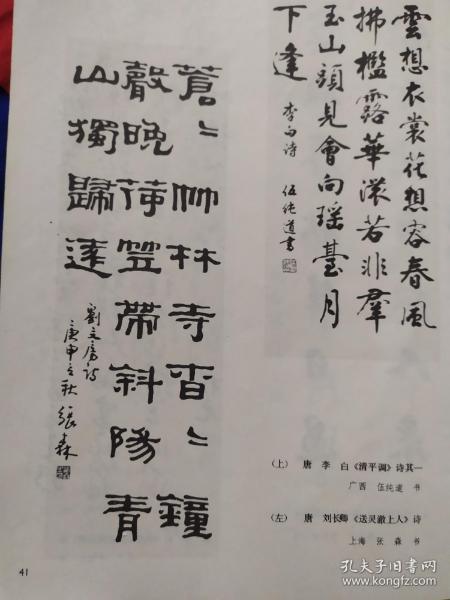 雲想衣裳花想容春風
拂檻露華濃若非羣
玉山頭見會向瑶臺月
下逢
李白诗 伍纯道書
蒼〻竹林寺杳〻鐘
聲晚荷笠帶斜陽青
山獨歸遠
劉文房诗
庚申之秋 張森
(上) 唐 李 白《清平调》诗其一
广西 伍纯道 书
(左) 唐 刘长卿《送灵澈上人》诗
上海 张 森 书
41
孔夫子旧书网